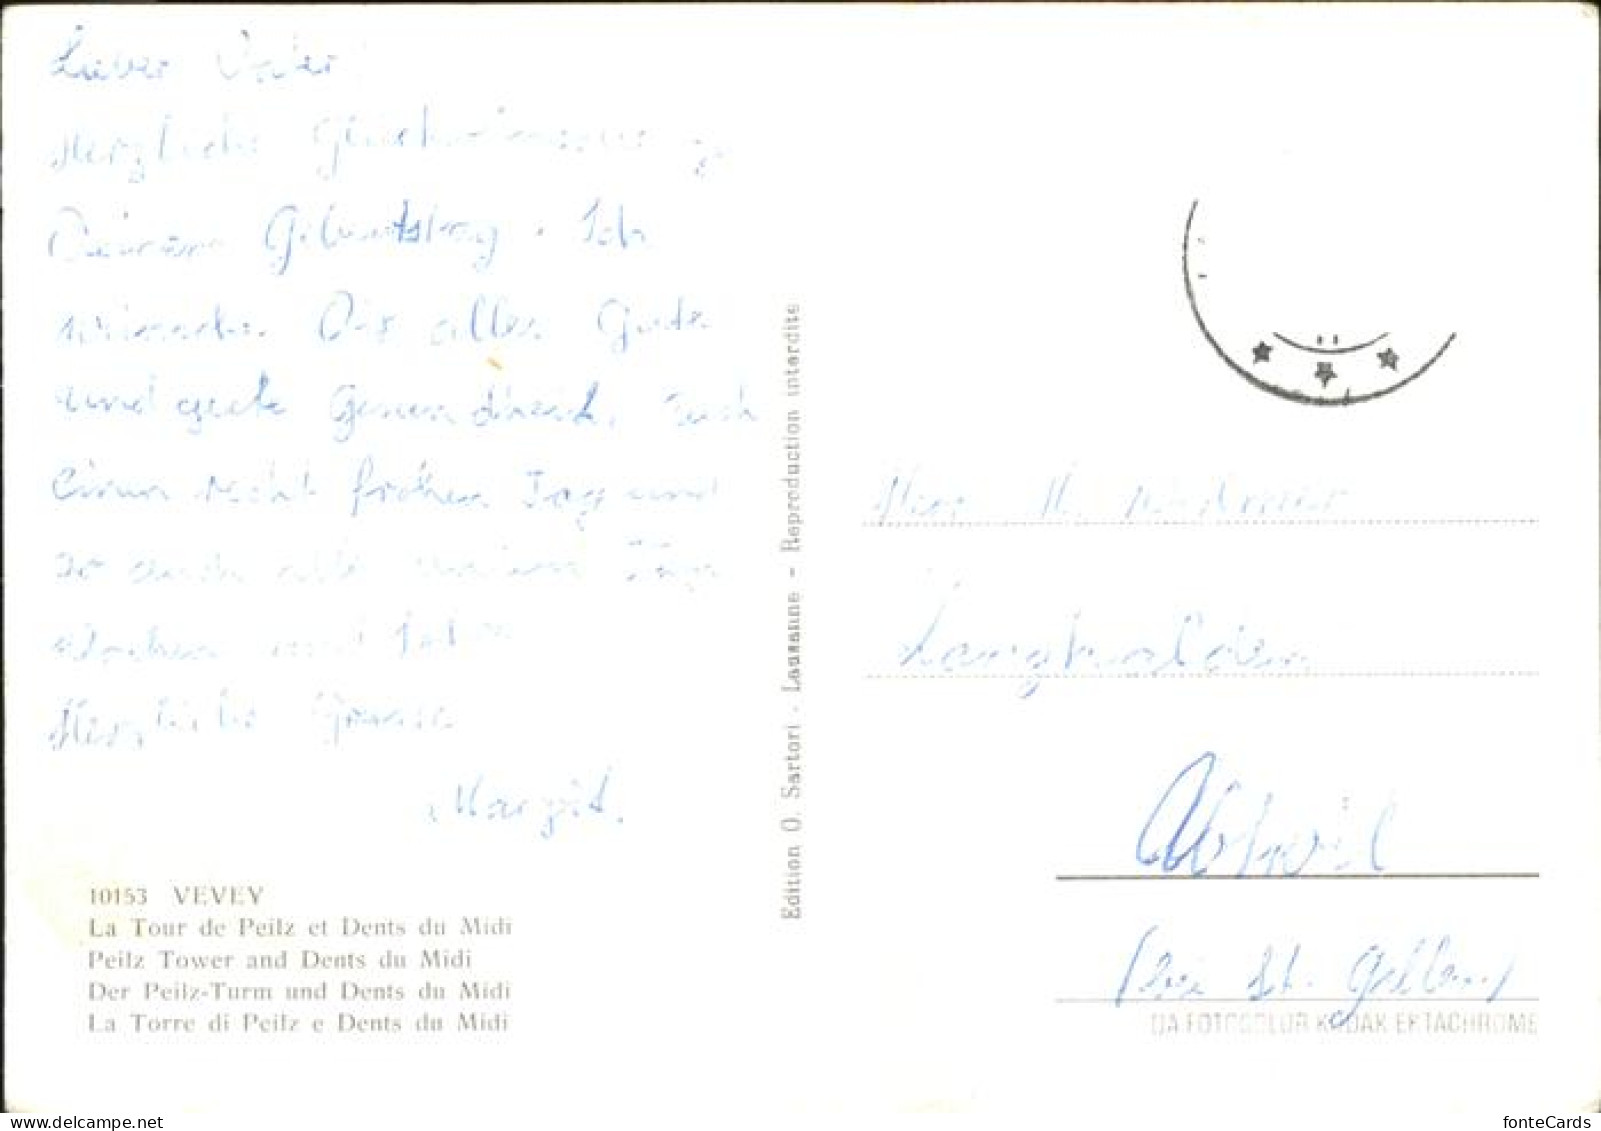 Lieber Vater!
Herzliche Glückwünsche zu
Deinem Geburtstag. Ich
wünsche Dir alles Gute
und gute Gesundheit. Auch
einen recht frohen Tag und
so auch alle weitern Tage
Wochen und Jahre
Herzliche Grüsse
Margit.
10153 VEVEY
La Tour de Peilz et Dents du Midi
Peilz Tower and Dents du Midi
Der Peilz-Turm und Dents du Midi
La Torre di Peilz e Dents du Midi
Edition O. Sartori - Lausanne - Reproduction interdite
Herr
Abtwil
(bei St. Gallen)
DA FOTOCOLOR KODAK EKTACHROME
fonteCards